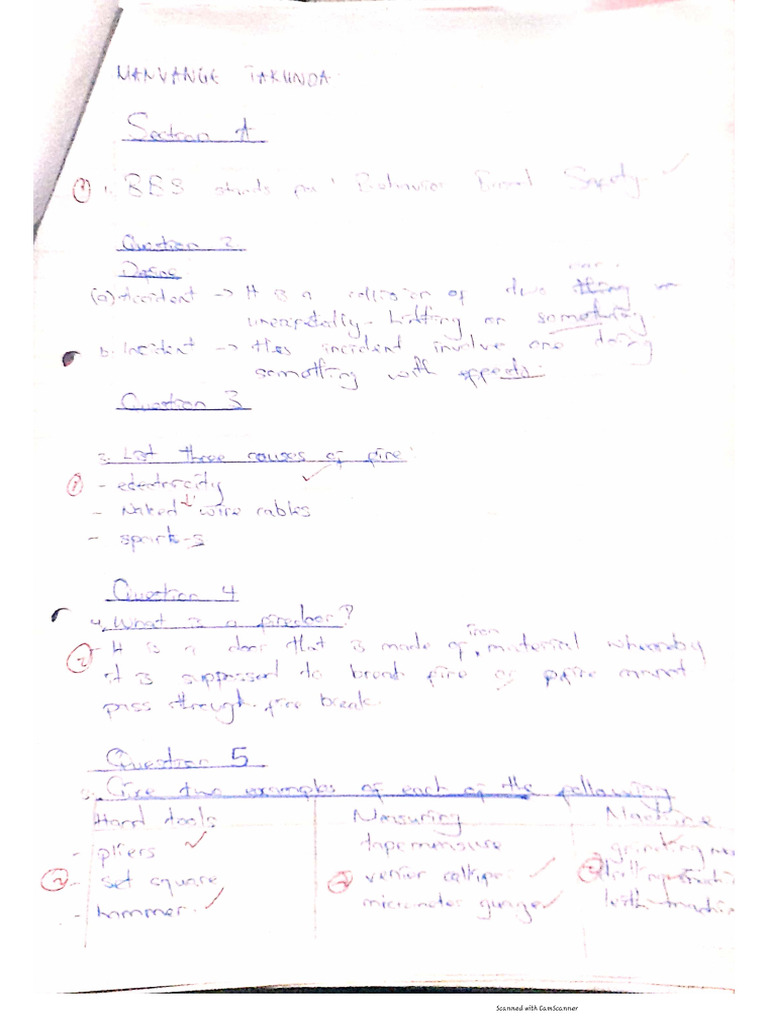 MANYANGE TAKUNDA
Section A
1. BBS stands for: Behavior Based Safety.
Question 2
Define
(a) Accident → It is a collision of two thing or
unexpetally hitting on something.
b. Incident → this incident involve one doing
something with
Question 3
3. List three causes of fire:
① - electricity
- Naked wire cables
- sparks
Question 4
4. What is a firedoor?
iron
② - It is a door that is made of, material whereby
it is suppossed to break fire or fire cannot
pass through fire break.
Question 5
5. Give two examples of each of the following
Hand tools Measuring Machine
- pliers tape measure grinding
② - set square ② venier
- hammer micrometer gunge
Scanned with CamScanner